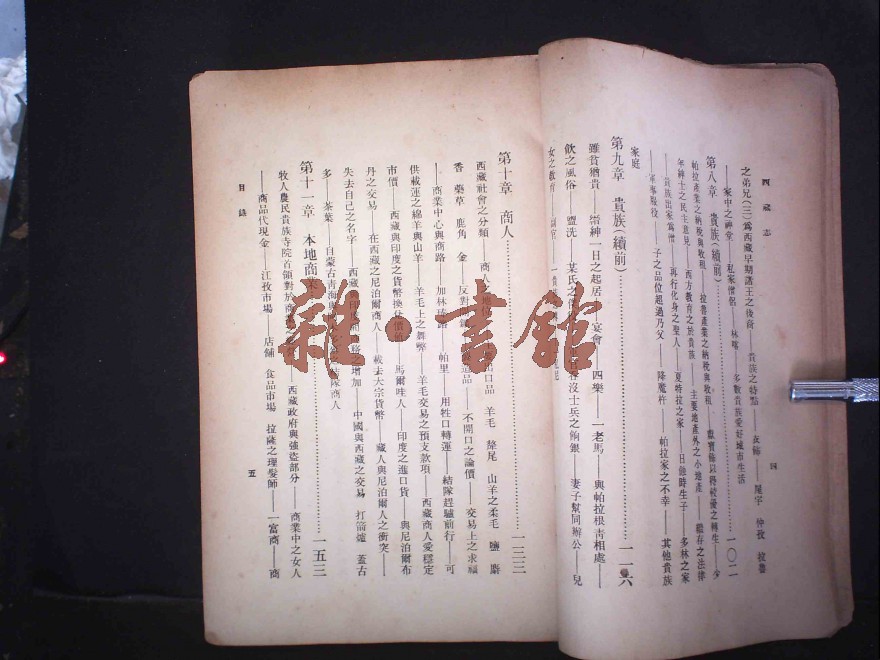 西藏志
四
之弟兄(三)爲西藏早期諸王之後裔——貴族之特點——衣飾——屋宇 仲孜 拉魯
——家中之神堂——私家僧侶 林喀——多數貴族愛好城市生活
第八章 貴族(續前)……一〇二
帕拉產業之納稅與收租——拉魯產業之納稅與收租——獻寶佛以得較優之轉生——少
年紳士之民主意見——西方教育之於貴族——主要地產外之小地產——繼存之法律
——貴族出家爲僧——再行化身之聖人——夏特拉之家——日佐時生子——多林之家
——軍事服役——子之品位超過乃父——降魔杵——帕拉家之不幸——其他貴族
家庭
第九章 貴族(續前)……一一六
雖貧猶貴——縉紳一日之起居——宴會——四樂——一老馬——與帕拉根靑相處——
飲之風俗——盥洗——某氏之 沒士兵之餉銀——妻子幫同辦公——兒
女之教育
第十章 商人……一三三
西藏社會之分類——商人 出口品 羊毛 犛尾 山羊之柔毛 鹽 麝
香 藥草 鹿角 金——反對 造品——不開口之論價——交易上之求福
——商業中心與商路——加林 路——帕里——用牲口轉運——結隊趕驢前行——可
供載運之綿羊與山羊——羊毛上之舞弊——羊毛交易之預支款項——西藏商人愛穩定
市價——西藏與印度之貨幣換 價 ——馬爾哇人——印度之進口貨——與尼泊爾布
丹之交易——在西藏之尼泊爾商人——載去大宗貨幣——藏人與尼泊爾人之衝突——
失去自己之名字——西藏與印度 務之增加——中國與西藏之交易 打箭爐 蓋古
多——茶葉——自蒙古靑海與 結隊商人
第十一章 本地商業……一五三
牧人農民貴族寺院首領對於商 西藏政府與強盜部分——商業中之女人
——商品代現金——江孜市場——店舖 食品市場 拉薩之理髮師——一富商——商
目錄
五
雜·書館